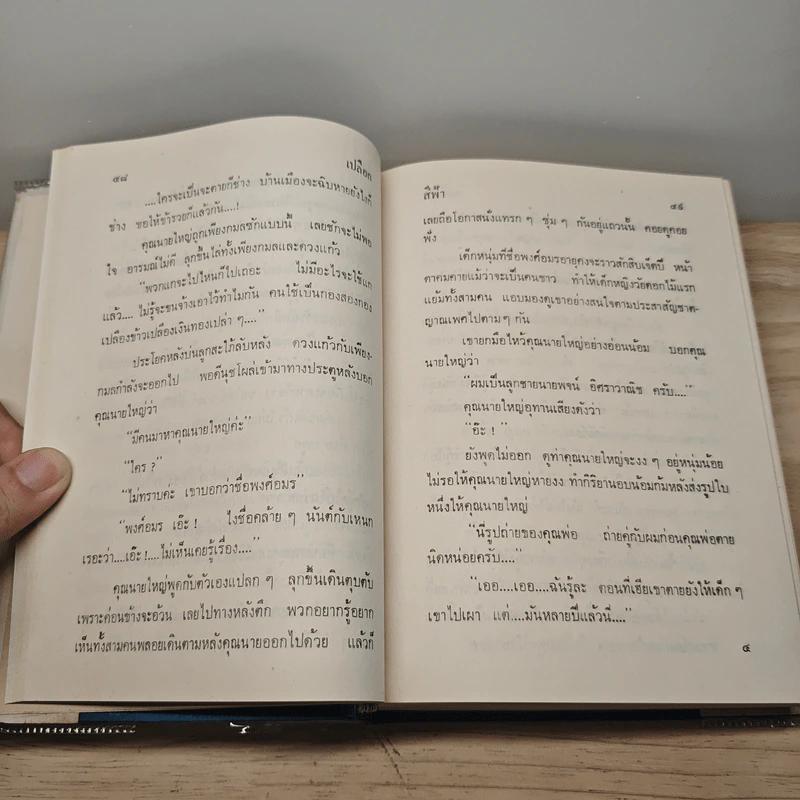 ๔๘
เปลือก
....ใครจะเป็นจะตายก็ช่าง บ้านเมืองจะฉิบหายยังไงก็
ช่าง ขอให้ข้ารวยก็แล้วกัน....!
คุณนายใหญ่ถูกเพียงกมลซักแบบนี้ เลยชักจะไม่พอ
ใจ อารมณ์ไม่ดี ลุกขึ้นไล่ทั้งเพียงกมลและดวงแก้ว
“พวกแกจะไปไหนก็ไปเถอะ ไม่มีอะไรจะใช้แก
แล้ว.... ไม่รู้จะขนจ้างเอาไว้ทำไมกัน คนใช้เป็นกองสองกอง
เปลืองข้าวเปลืองเงินทองเปล่า ๆ....”
ประโยคหลังบ่นลูกสะใภ้ลับหลัง ดวงแก้วกับเพียง-
กมลกำลังจะออกไป พอดีนุชโผล่เข้ามาทางประตูหลังบอก
คุณนายใหญ่ว่า
“มีคนมาหาคุณนายใหญ่ค่ะ”
“ใคร ?”
“ไม่ทราบค่ะ เขาบอกว่าชื่อพงศ์อมร”
“พงศ์อมร เอ๊ะ ! ไงชื่อคล้าย ๆ นันต์กับเหนท
เรอะว่า....เอ๊ะ !....ไม่เห็นเคยรู้เรื่อง....”
คุณนายใหญ่พูดกับตัวเองแปลก ๆ ลุกขึ้นเดินตุบตับ
เพราะค่อนข้างจะอ้วน เลยไปทางหลังตึก พวกอยากรู้อยาก
เห็นทั้งสามคนพลอยเดินตามหลังคุณนายออกไปด้วย แล้วก็
สีฟ้า
๔๙
เลยถือโอกาสนั่งแทรก ๆ ซุ่ม ๆ กันอยู่แถวนั้น คอยดูคอย
ฟัง
เด็กหนุ่มที่ชื่อพงศ์อมรอายุคงจะราวสักสิบเจ็ดปี หน้า
ตาคมคายแม้ว่าจะเป็นคนขาว ทำให้เด็กหญิงวัยดอกไม้แรก
แย้มทั้งสามคน แอบมองดูเขาอย่างสนใจตามประสาสัญชาต-
ญาณเพศไปตาม ๆ กัน
เขายกมือไหว้คุณนายใหญ่อย่างอ่อนน้อม บอกคุณ
นายใหญ่ว่า
“ผมเป็นลูกชายนายพจน์ อิศราวาณิช ครับ....”
คุณนายใหญ่อุทานเสียงดังว่า
“อ๊ะ !”
ยังพูดไม่ออก ดูท่าคุณนายใหญ่จะงง ๆ อยู่หนุ่มน้อย
ไม่รอให้คุณนายใหญ่หายงง ทำกิริยานอบน้อมก้มหลังส่งรูปใบ
หนึ่งให้คุณนายใหญ่
“นี่รูปถ่ายของคุณพ่อ ถ่ายคู่กับผมก่อนคุณพ่อตาย
นิดหน่อยครับ....”
“เออ....เออ....ฉันรู้ละ ตอนที่เฮียเขาตายยังให้เด็ก ๆ
เขาไปเผา แต่....มันหลายปีแล้วนี่....”
๔